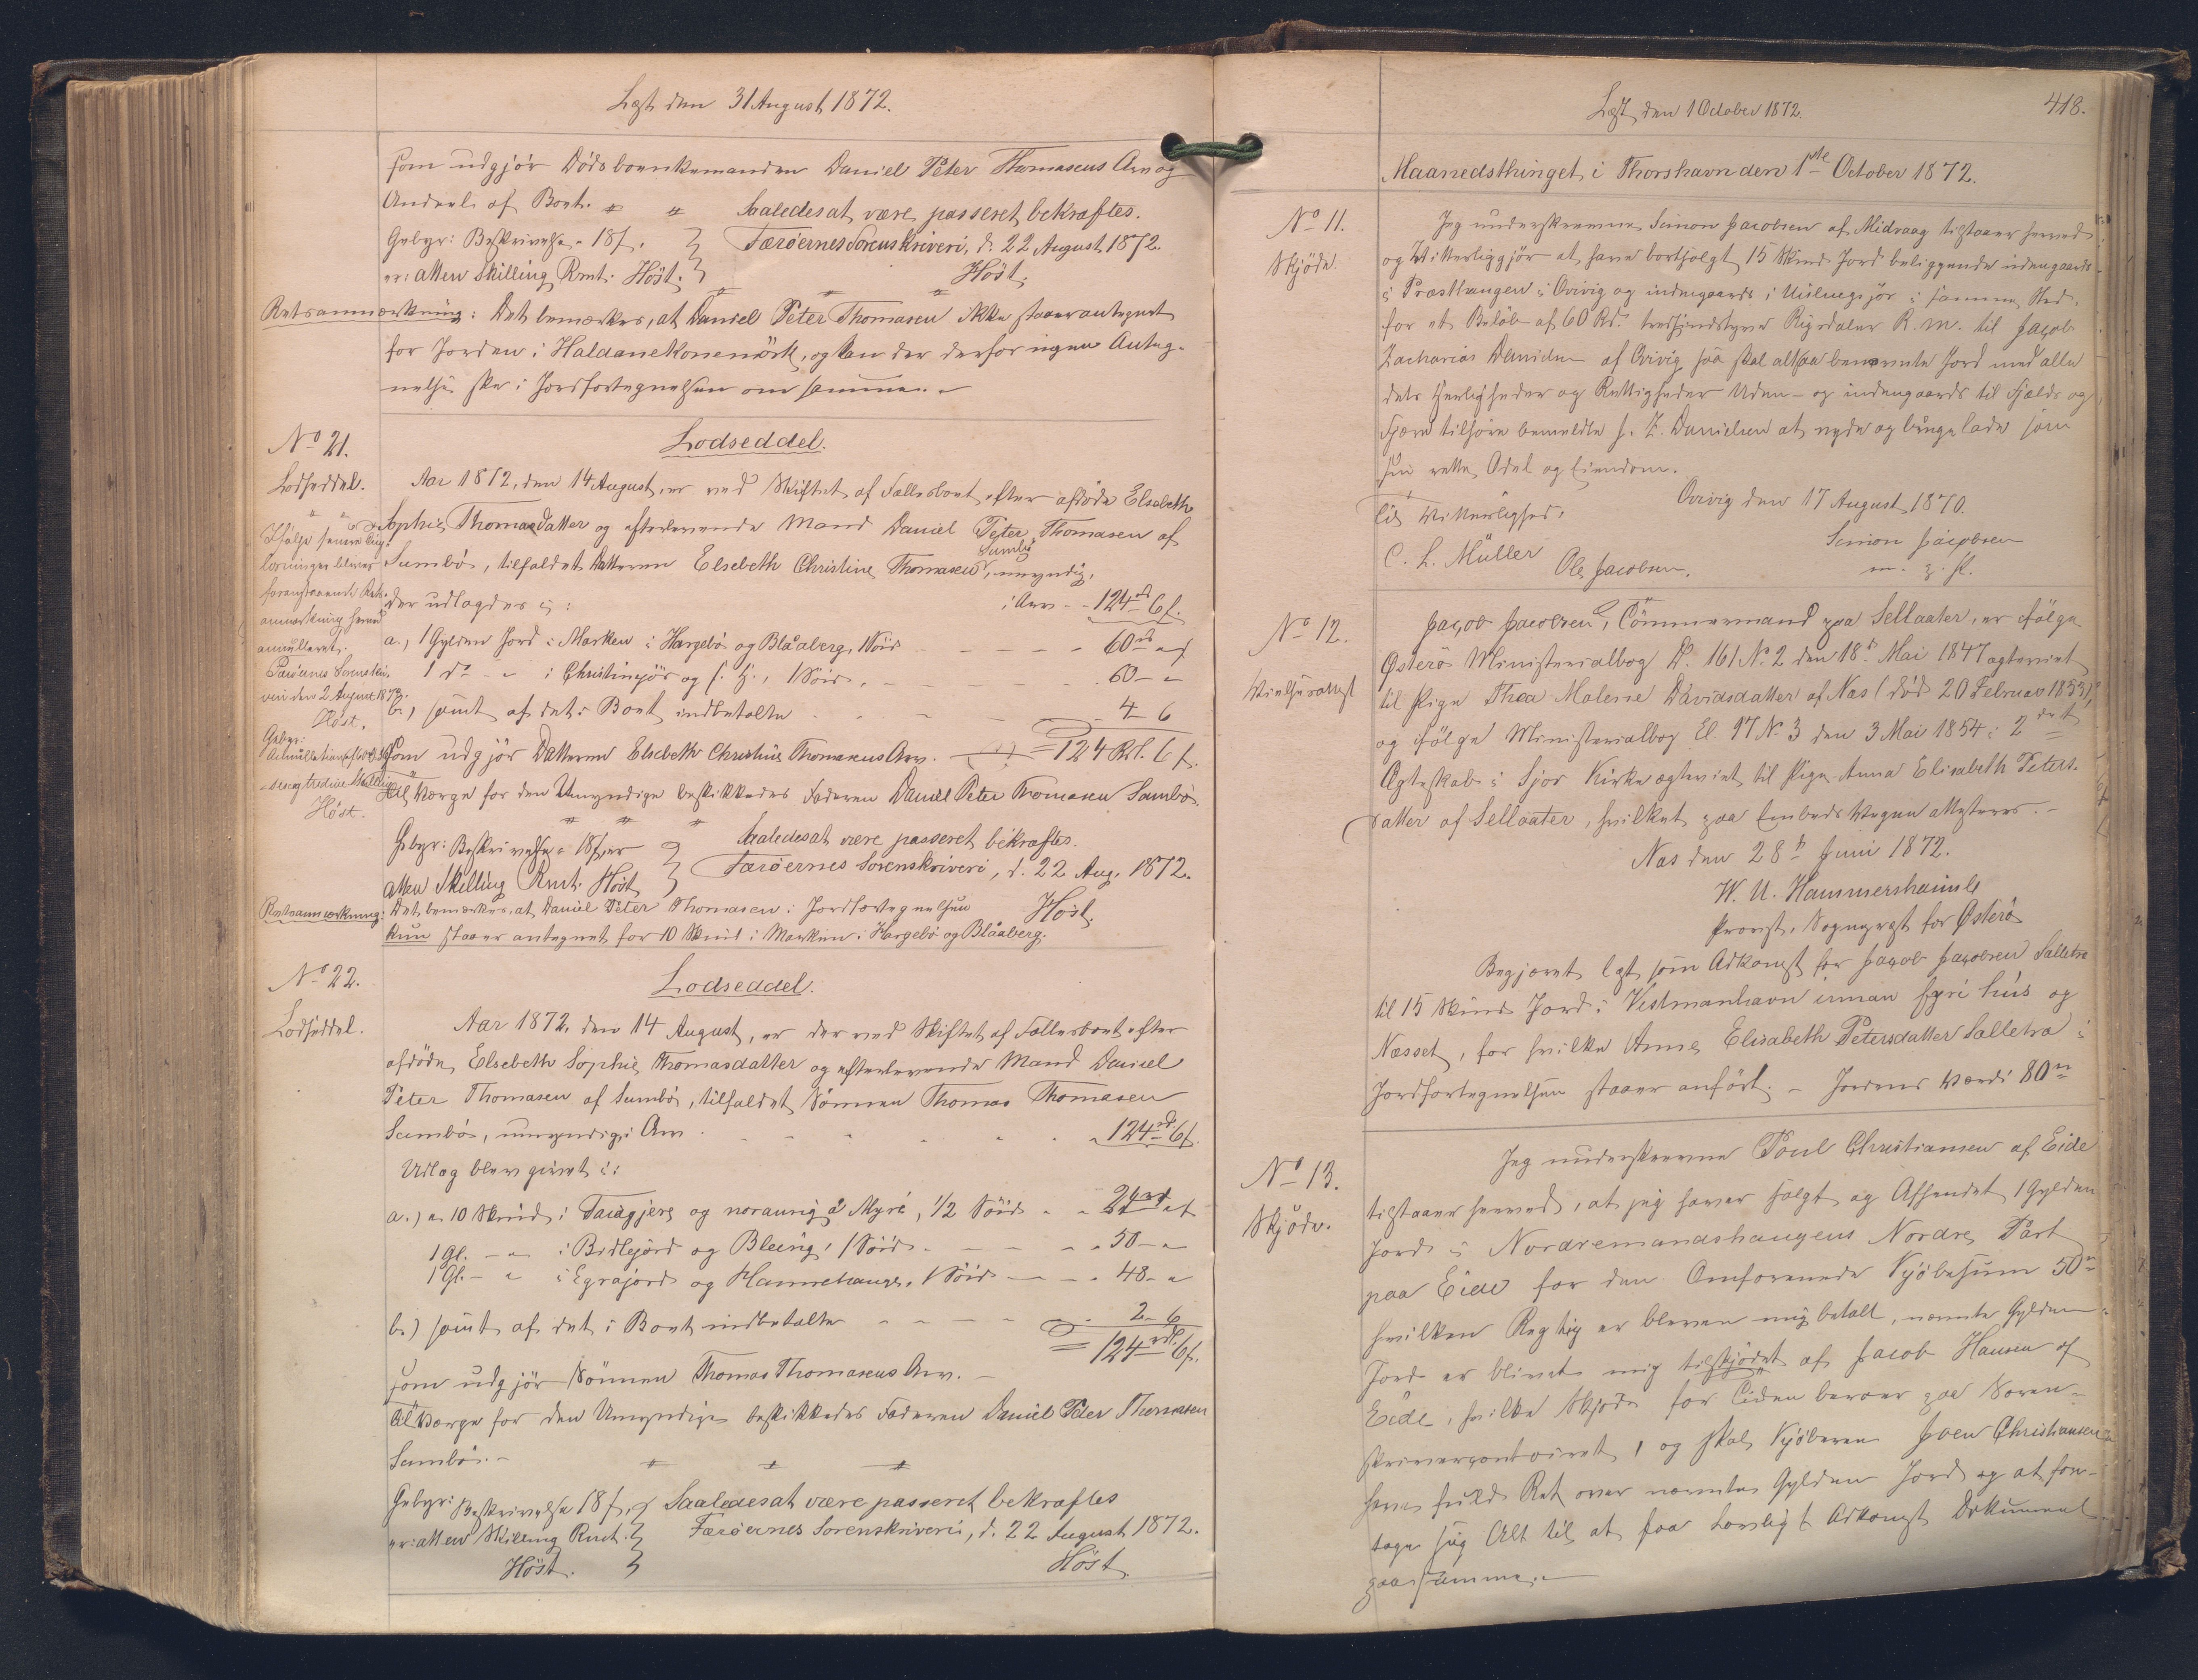 Læst den 31 August 1872.
som udgjør Dødsboenkemanden Daniel Peter Thomasens Arv og
Andeel af Boet. " " Saaledes at være passeret bekræftes.
Gebyr: Beskrivelse 18 s. Færøernes Sorenskriveri, d. 22 August 1872.
er: atten Skilling Rmt. Høst. Høst.
Retsanmærkning: Det bemærkes, at Daniel Peter Thomasen ikke staaer antegnet
for Jorden i Haldanekonemörk, og kan der derfor ingen Anteg-
nelse ske i Jordfortegnelsen om samme.
No 21. Lodseddel.
Lodseddel. Aar 1872, den 14 August, er ved Skiftet af Fællesboet efter afdøde Elsebeth
Sophie Thomasdatter og efterlevende Mand Daniel Peter Thomasen af
Sumbø, tilfaldet Datteren Elsebeth Christine Thomasen Sumbø, umyndig,
i Arv - - 124 rd 6 s.
der udlagdes i:
a., 1 Gylden Jord i Marken i Hargebø og Blåaberg, 1 Söid - - - - 60 rd " s
1 do - " i Christinejör og s. H., 1 Söid. - - - 60 - "
b., samt af det i Boet indbetalte - - - 4 - 6
som udgjør Datteren Elsebeth Christine Thomasens Arv. = 124 Rd. 6 s.
Til Værge for den Umyndige beskikkedes Faderen Daniel Peter Thomasen Sumbø.
Ifølge senere
foranstaaende Ret-
anmærkning herved
annulleret.
Færöernes Sorenskri-
veri den 2 August 1873.
Høst.
Gebyr:
Høst.
Gebyr: Beskrivelse 18 s, er Saaledes at være passeret bekræftes.
atten Skilling Rmt. Høst Færøernes Sorenskriveri, d. 22 Aug. 1872.
Høst.
Retsanmærkning: Det bemærkes, at Daniel Peter Thomasen i Jordfortegnelsen
kun staaer antegnet for 10 Skind i Marken i Hargebø og Blåaberg.
No 22. Lodseddel.
Lodseddel. Aar 1872, den 14 August, er der ved Skiftet af Fællesboet efter
afdøde Elsebeth Sophie Thomasdatter og efterlevende Mand Daniel
Peter Thomasen af Sumbø, tilfaldet Sönnen Thomas Thomasen
Sumbø, umyndig i Arv - - - - 124 rd 6 s.
Udlag blev givet i:
a.) " 10 Skind i og noraurig á Myré, 1/2 Söid - - 24 rd " s
1 Gl. - " i Bidlejörd og Bleing, 1 Söid - - - 50 - "
1 Gl. - " i Egrajord og Hamrehauge, 1 Söid - - - 48 - "
b.) samt af det i Boet indbetalte - - - - 2 - 6
= 124 rd. 6 s.
som udgjør Sönnen Thomas Thomasens Arv. -
Til Værge for den Umyndige beskikkedes Faderen Daniel Peter Thomasen
Sumbø. -
Gebyr: Beskrivelse 18 s, Saaledes at være passeret bekræftes
er: atten Skilling Rmt. Færøernes Sorenskriveri, d. 22 August 1872.
Høst. Høst.
Læst den 1 October 1872. 418.
Maanedsthinget i Thorshavn den 1ste October 1872.
No 11. Jeg underskrevne Simon Jacobsen af Midvaag tilstaaer herved
Skjöde. og Witterliggjör at have bortsolgt 15 Skind Jord beliggende udengaards
i Præsthaugen i Qvivig og indengaards i samme Sted,
for et Beløb af 60 Rd. tresindstyve Rigsdaler R. M. til Jacob
Zacharias Danielsen af Qvivig, saa skal altsaa benævnte Jord med alle
dets Herligheder og Rettigheder Uden- og indengaards til Fjelds og
Fjære tilhøre bemeldte J. Z. Danielsen at nyde og bruge lade som
sin rette Odel og Eiendom.
Qvivig den 17 August 1870.
Til Witterlighed. Simon Jacobsen
C. L. Müller Ole Jacobsen. m. p. P.
No 12. Jacob Jacobsen, Tömmermand paa Sellaater, er ifölge
Österö Ministerialbog D. 161 No. 2 den 18de Mai 1847 egteviet
Vielsesattest til Pige Thea Malene Davidsdatter af Næs (död 20 Februar 1853)
og ifölge Ministerialbog El. 97 No. 3 den 3 Mai 1854 i 2det
Ægteskab i Sjov Kirke egteviet til Pige Anna Elisabeth Peters-
datter af Sellaater, hvilket paa Embeds Vegne attesteres. -
Næs den 28de Juni 1872.
W. U. Hammershaimb
Provst, Sognepræst for Österö
Begjæret læst som Adkomst for Jacob Jacobsen Salletra
til 15 Skind Jord i Vestmanhavn innan fyri hús og
Næsset, for hvilke Anne Elisabeth Petersdatter Salletra i
Jordfortegnelsen staaer anfört. - Jordens Værdi 80 rd
No 13. Jeg underskrevne Poul Christiansen af Eide
Skjöde. tilstaaer herved, at jeg haver solgt og Afhændet 1 Gylden
Jord i Nordremandshaugens Nordre Part
paa Eide for den Omforenede Kjøbesum 50 rd
hvilken Rigtig er bleven mig betalt, nævnte Gylden
Jord er blivet mig tilskjödet af Jacob Hansen af
Eide, hvilke Skjöde for Tiden beroer paa Soren-
skrivercontoiret, og skal Kjöberen Joen Christiansen
have fuld Ret over nævnte Gylden Jord og at fore-
tage sig Alt til at faa Lovligt Adkomst Dokument
paa samme. -